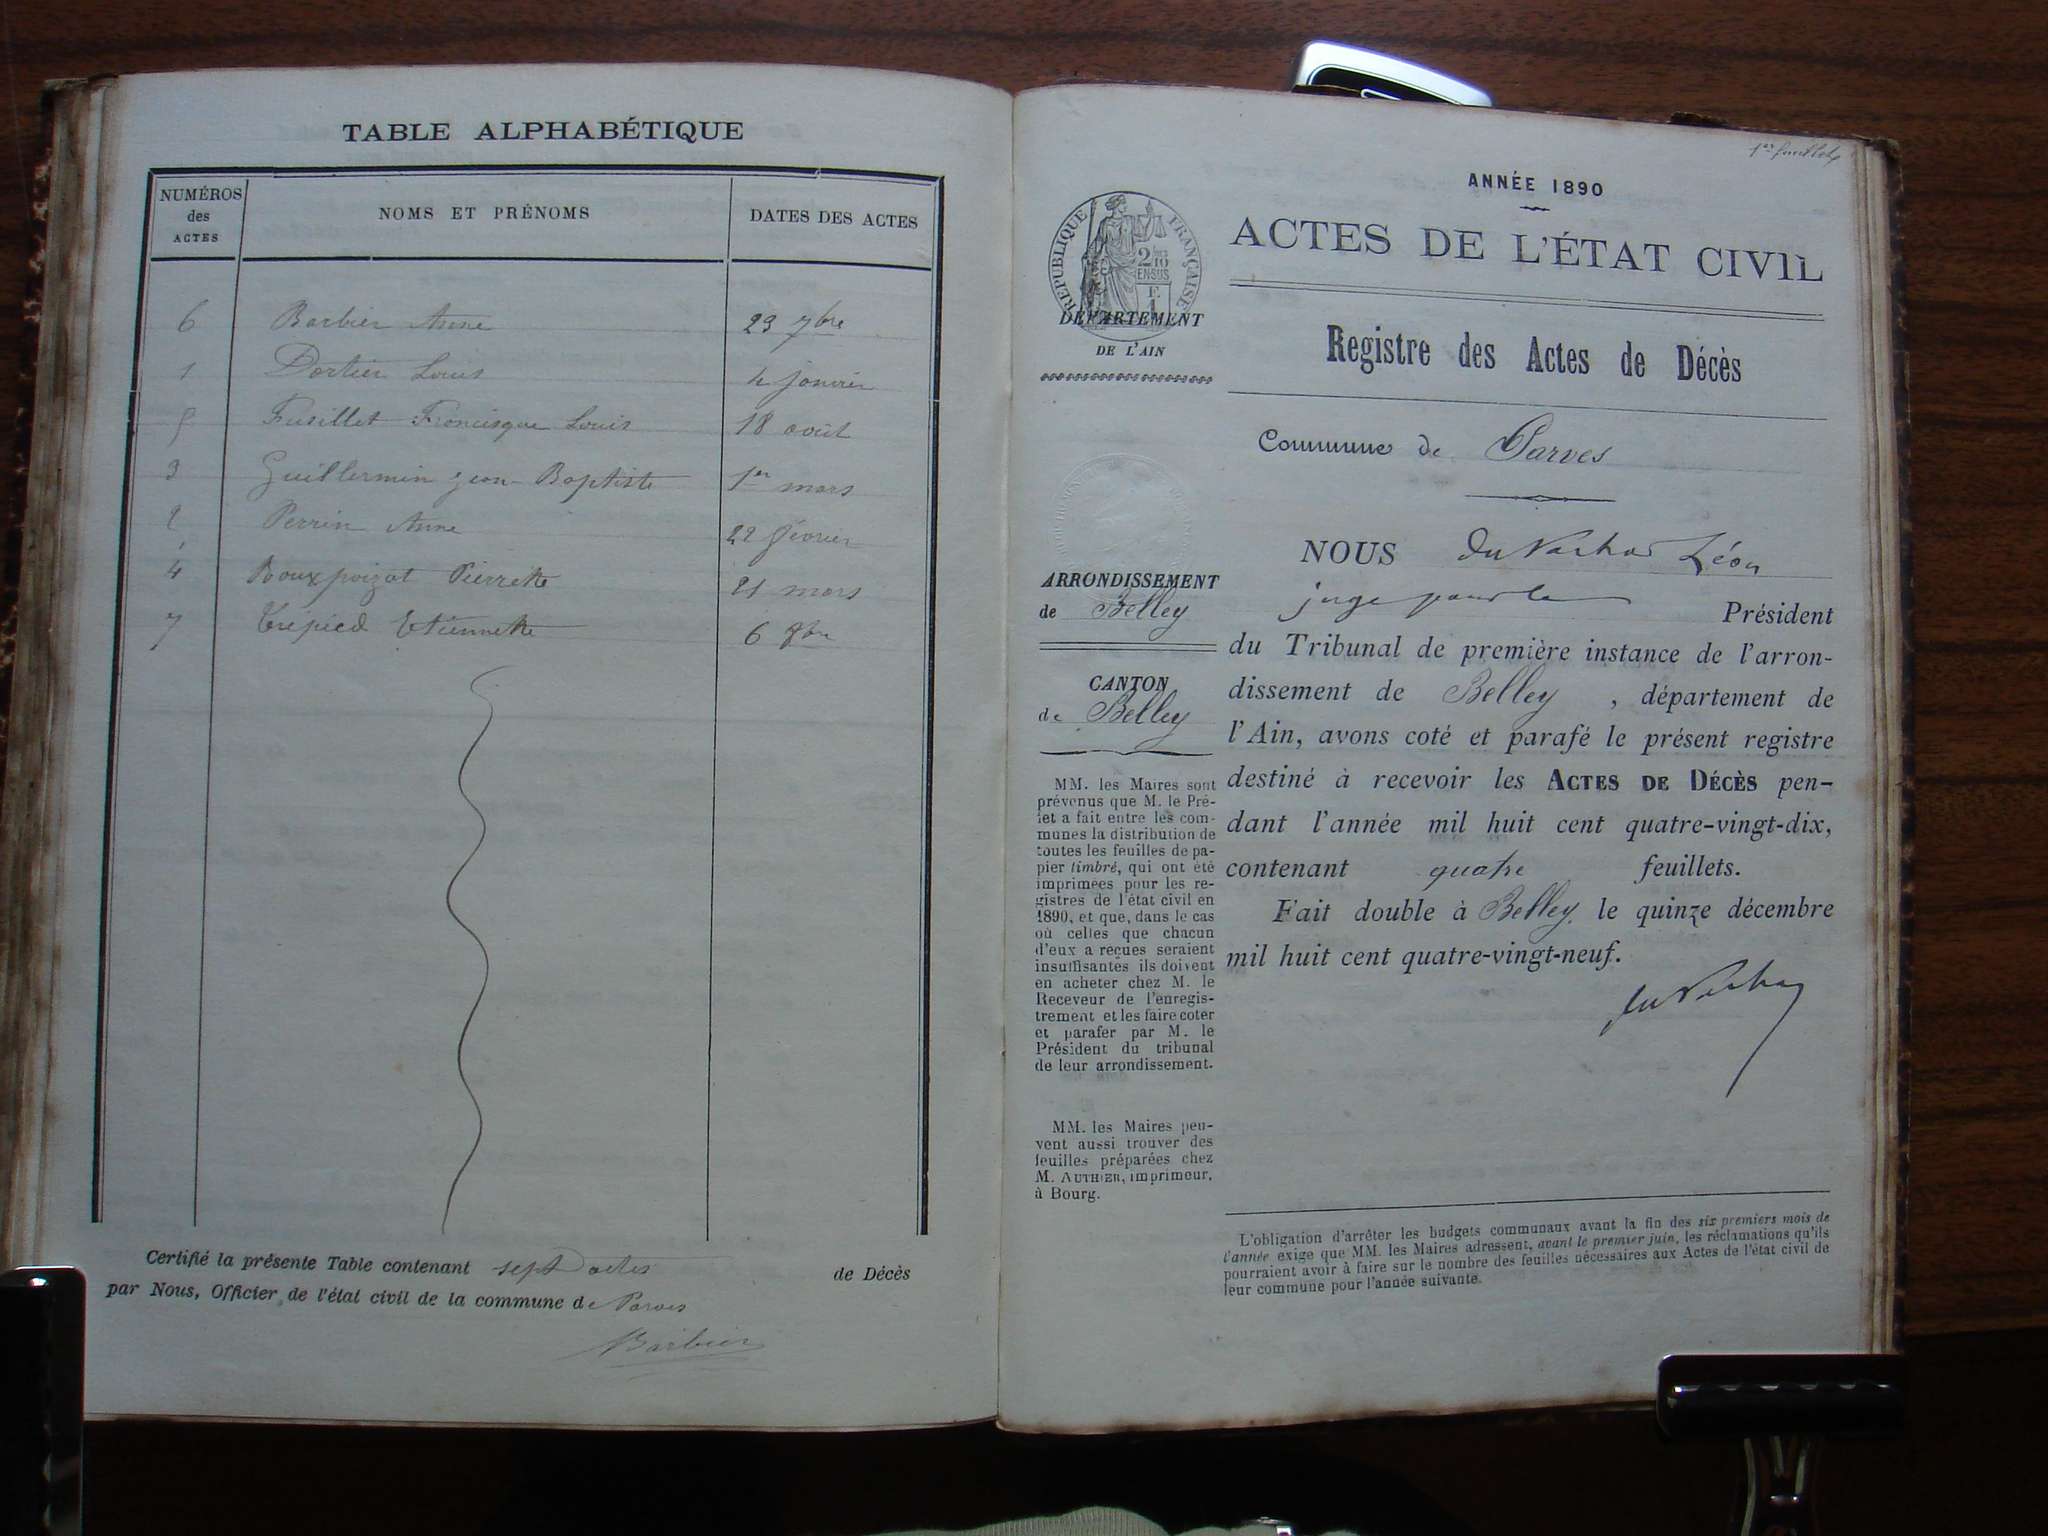 TABLE ALPHABÉTIQUE
NUMÉROS des ACTES
NOMS ET PRÉNOMS
DATES DES ACTES
6 Barbier Anne 23 7bre
1 Dortier Louis 4 janvier
5 Fusillet Francisque Louis 18 août
3 Guillermin Jean-Baptiste 1er mars
2 Perrin Anne 22 février
4 Rouxpoizat Pierrette 21 mars
7 Trépied Etiennette 6 8bre
Certifié la présente Table contenant sept actes de Décès
par Nous, Officier de l'état civil de la commune de Parves
Barbier
1er feuillet
ANNÉE 1890
ACTES DE L'ÉTAT CIVIL
RÉPUBLIQUE FRANÇAISE
2/10 EN SUS
DÉPARTEMENT
DE L'AIN
Registre des Actes de Décès
Commune de Parves
ARRONDISSEMENT
de Belley
CANTON
de Belley
MM. les Maires sont
prévenus que M. le Pré-
fet a fait entre les com-
munes la distribution de
toutes les feuilles de pa-
pier timbré, qui ont été
imprimées pour les re-
gistres de l'état civil en
1890, et que, dans le cas
où celles que chacun
d'eux a reçues seraient
insuffisantes ils doivent
en acheter chez M. le
Receveur de l'enregis-
trement et les faire coter
et parafer par M. le
Président du tribunal
de leur arrondissement.
MM. les Maires peu-
vent aussi trouver des
feuilles préparées chez
M. AUTHIER, imprimeur,
à Bourg.
NOUS Léon
juge pour le Président
du Tribunal de première instance de l'arron-
dissement de Belley, département de
l'Ain, avons coté et parafé le présent registre
destiné à recevoir les ACTES DE DÉCÈS pen-
dant l'année mil huit cent quatre-vingt-dix,
contenant quatre feuillets.
Fait double à Belley, le quinze décembre
mil huit cent quatre-vingt-neuf.
L'obligation d'arrêter les budgets communaux avant la fin des six premiers mois de
l'année exige que MM. les Maires adressent, avant le premier juin, les réclamations qu'ils
pourraient avoir à faire sur le nombre des feuilles nécessaires aux Actes de l'état civil de
leur commune pour l'année suivante.